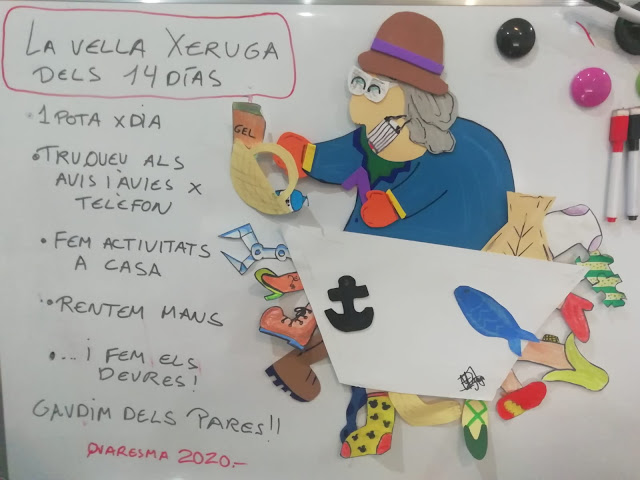 LA VELLA XERUGA
DELS 14 DÍAS
• 1 POTA X DIA
• TRUQUEU ALS
AVIS I ÀVIES X
TELEFON
• FEM ACTIVITATS
A CASA
• RENTEM MANS
• ... I FEM ELS
DEURES!
GAUDIM DELS PARES!!
QUARESMA 2020.-
GEL